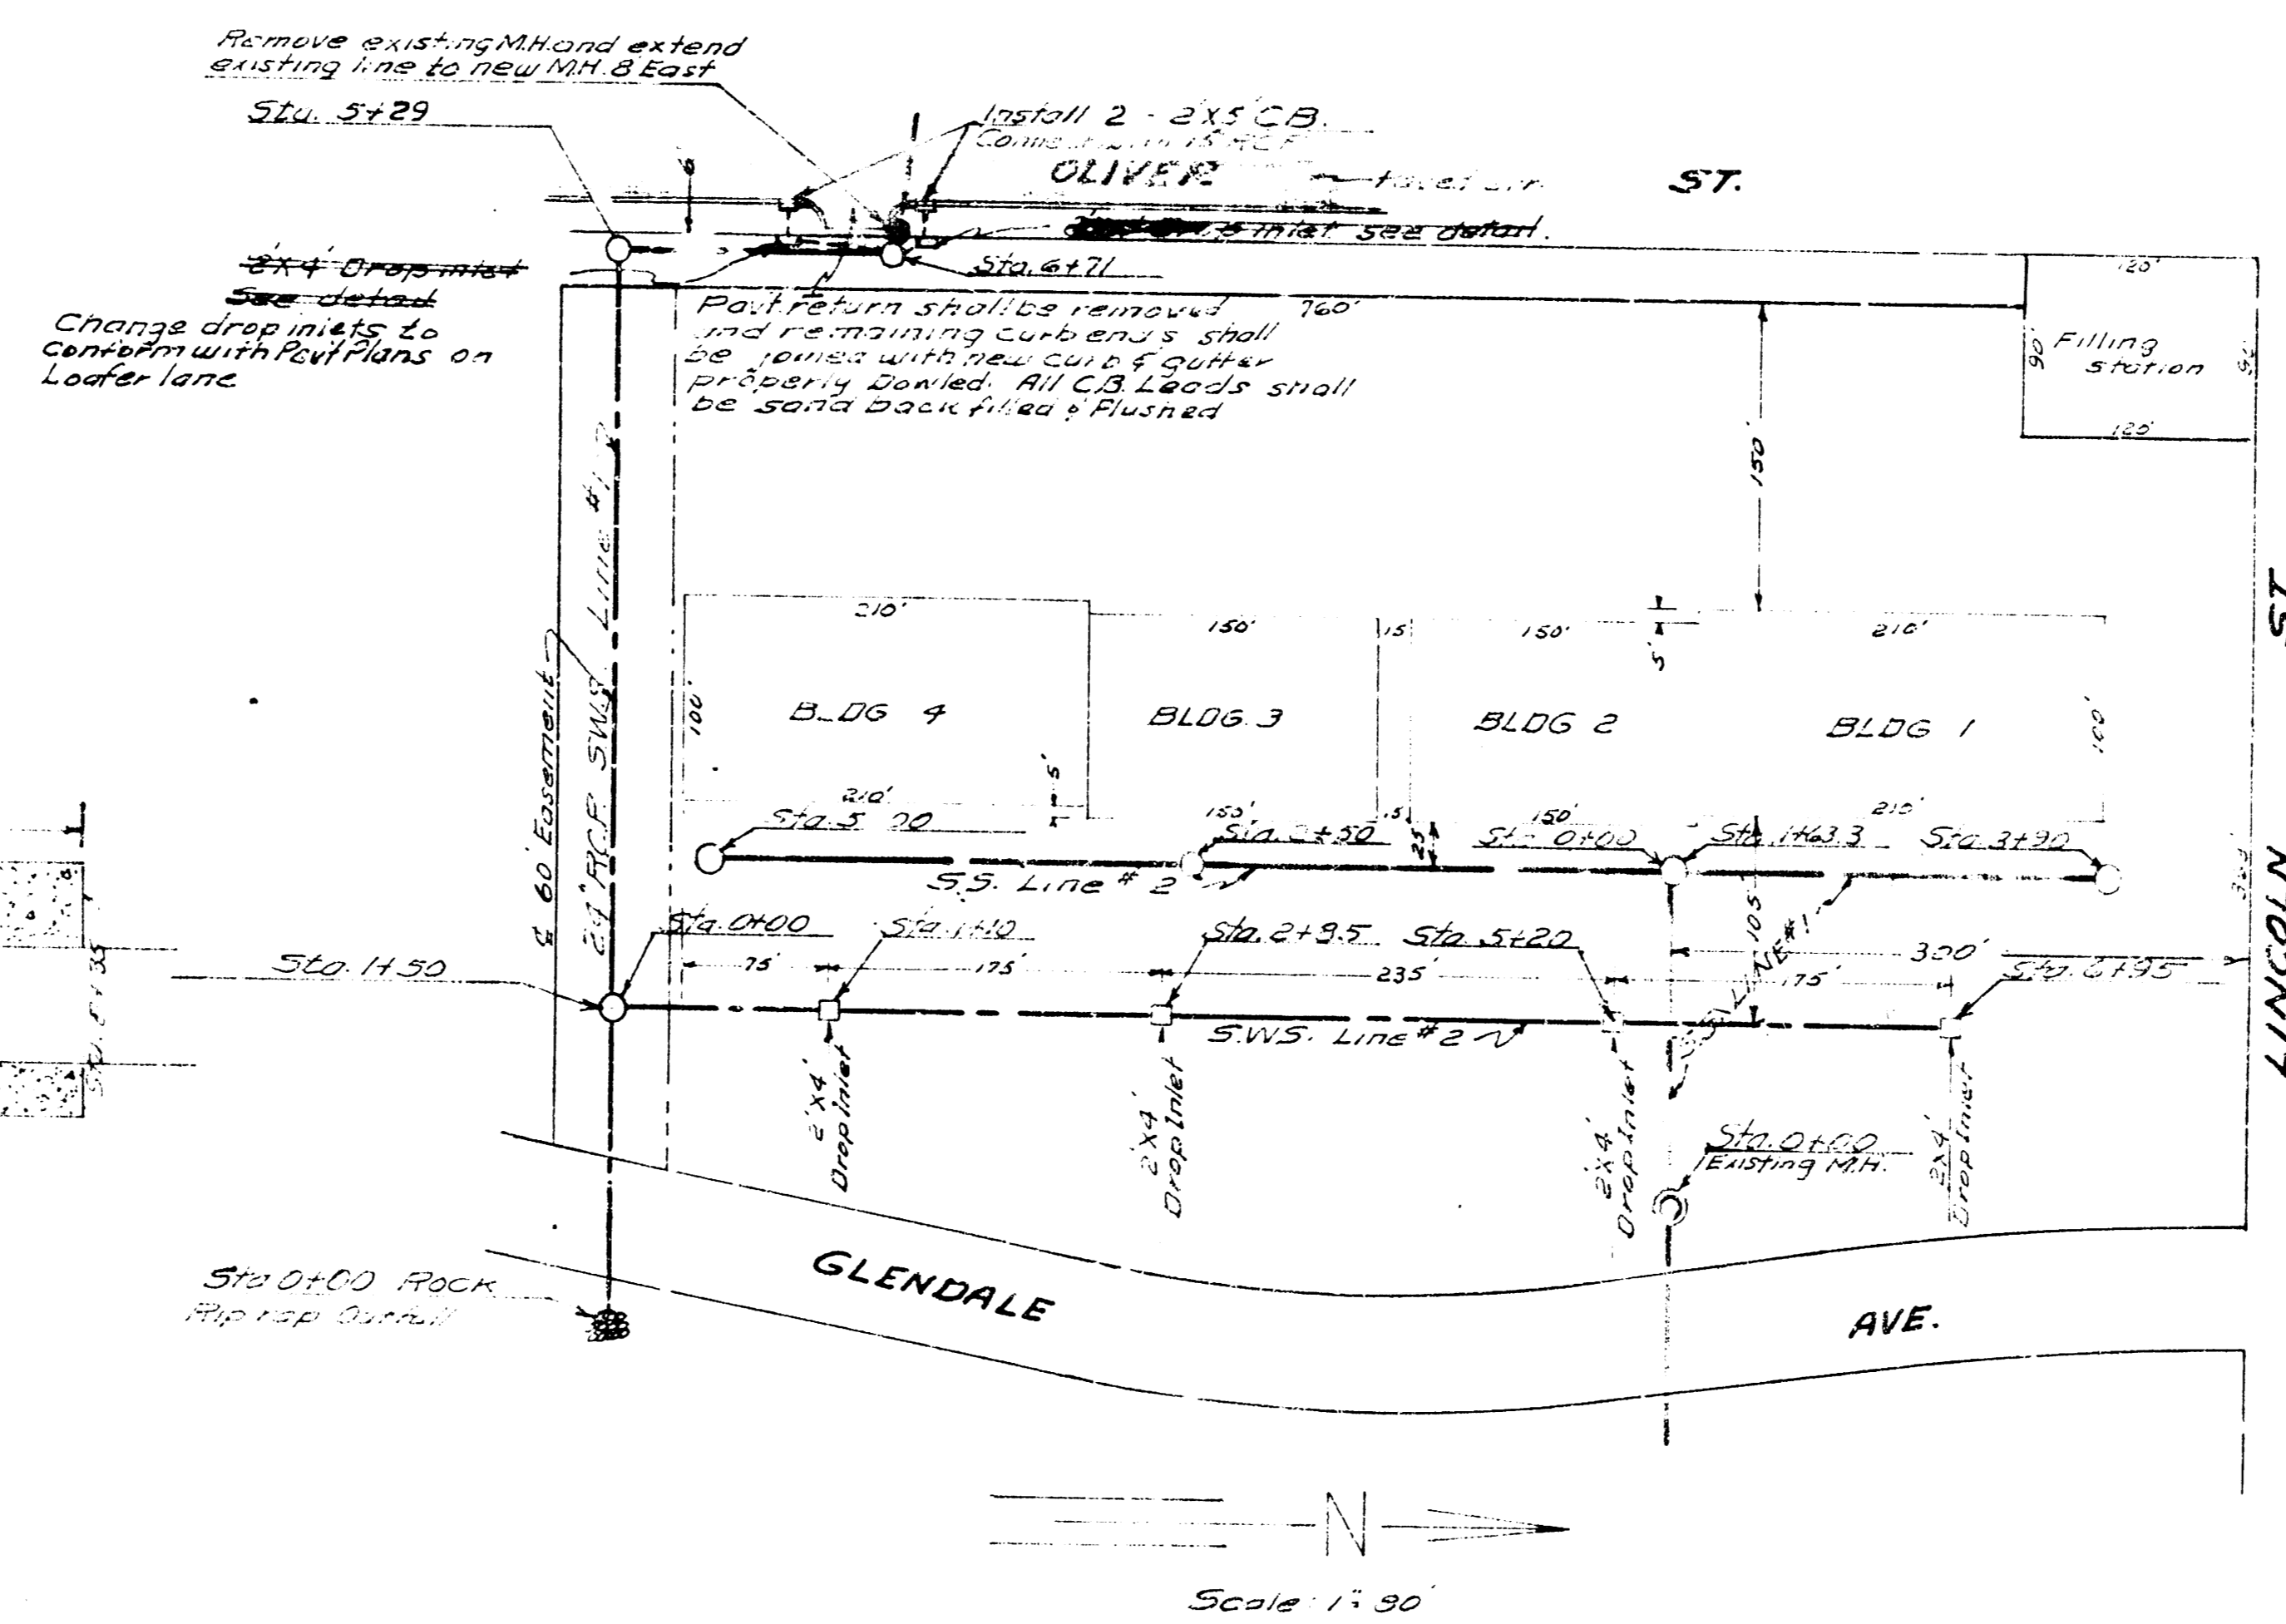 Remove existing M.H. and extend
existing line to new M.H. 8' East
Sta. 5+29
Install 2 - 2'x5' C.B.
OLIVER ST.
inlet see detail.
2'x4' Drop inlet
See detail
Change drop inlets to
Conform with Pav't Plans on
Loafer lane
Sta. 6+71
Pav't return shall be removed
and remaining curb ends shall
be joined with new curb & gutter
properly Dowled. All C.B. Leads shall
be sand back filled & Flushed
760'
120'
90'
Filling
station
120'
150'
24" RCP SWS Line #1
℄ 60' Easement
210'
150'
15'
150'
5'
210'
100'
BLDG 4
BLDG. 3
BLDG 2
BLDG 1
100'
210'
5'
150'
15'
150'
210'
Sta. 5+00
Sta. 2+50
25'
Sta. 0+00
Sta. 1+63.3
Sta. 3+90
S.S. Line #2
Sta. 0+00
Sta. 1+10
Sta. 2+85
Sta. 5+20
105'
300'
Sta. 6+95
Sta. 1+50
75'
175'
235'
175'
S.W.S. Line #2
2'x4'
Drop inlet
2'x4'
Drop Inlet
2'x4'
Drop Inlet
2'x4'
Drop Inlet
Sta. 0+00
Existing M.H.
LINCOLN ST.
Sta 0+00 Rock
Rip rap Outfall
GLENDALE AVE.
N